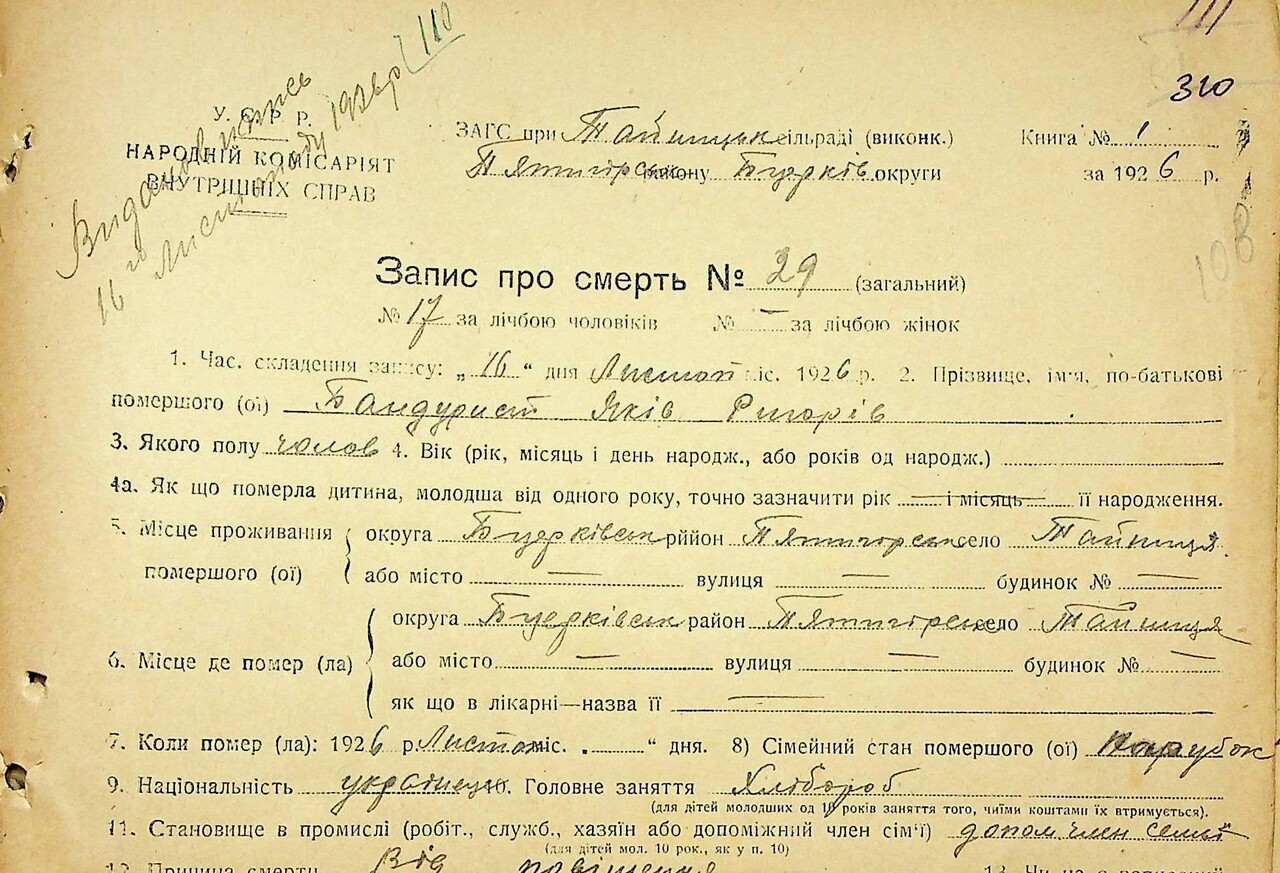 111
110
310
108
Видано випись
16 го Листопаду 1926 р
У. С. Р. Р.
НАРОДНІЙ КОМІСАРІЯТ
ВНУТРІШНІХ СПРАВ
ЗАГС при Тайницьк сільраді (виконк.) Книга № 1
Пятигорськ району Бцерків округи за 1926 р.
Запис про смерть № 29 (загальний)
№ 17 за лічбою чоловіків № — за лічбою жінок
1. Час. складення запису: „16“ дня Листопа міс. 1926 р. 2. Прізвище, ім'я, по-батькові
помершого (ої) Бандурист Яків Ригорів
3. Якого полу чолов 4. Вік (рік, місяць і день народж., або років од народж.)
4а. Як що померла дитина, молодша від одного року, точно зазначити рік — і місяць — її народження.
5. Місце проживання округа Бцерківськ рййон Пятигорськ село Тайниця
помершого (ої) або місто — вулиця — будинок № —
округа Бцерківськ район Пятигорськ село Тайниця
6. Місце де помер (ла) або місто — вулиця — будинок № —
як що в лікарні—назва її —
7. Коли помер (ла): 1926 р. Листопа міс. „ “ дня. 8) Сімейний стан помершого (ої) парубок
9. Національність українець 10. Головне заняття Хлібороб
(для дітей молодших од 10 років заняття того, чиїми коштами їх втримується).
11. Становище в промислі (робіт., служб., хазяїн або допоміжний член сім'ї) допом. член семьї
(для дітей мол. 10 рок., як у п. 10)
12. Причина смерти Від повішення 13. Чи на є